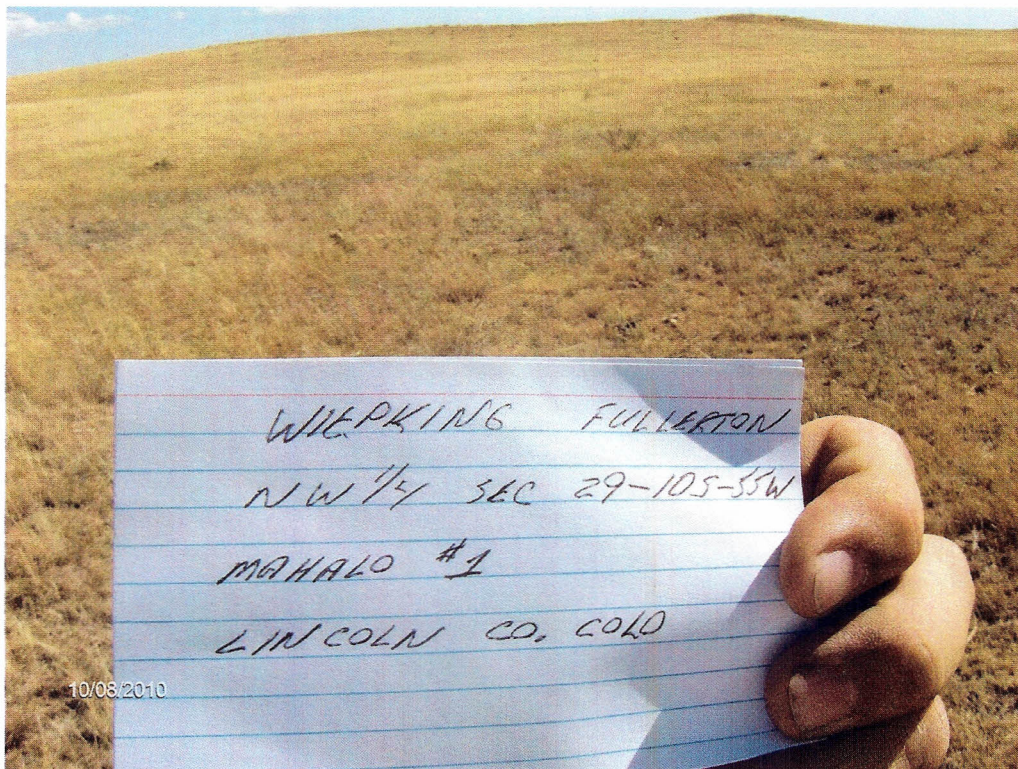 WIEPKING FULLERTON
NW 1/4 SEC 29-10S-55W
MAHALO #1
LINCOLN CO. COLO
10/08/2010